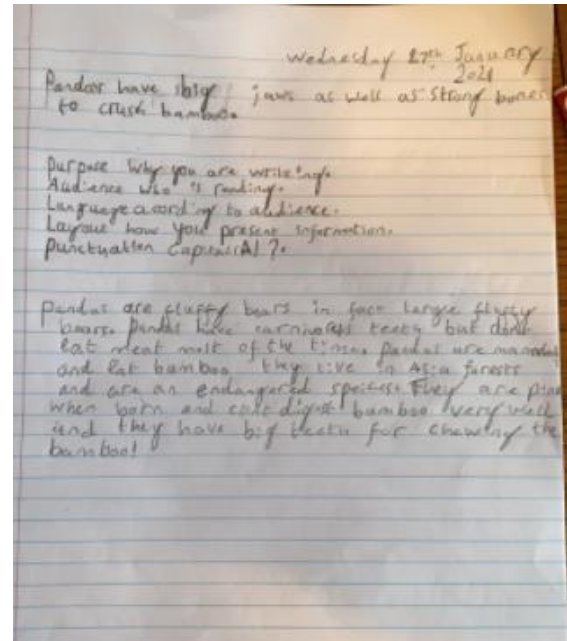 Wednesday 27th January
2021
Pandas have big jaws as well as strong bones
to crush bamboo.
Purpose Why you are writeing.
Audience who is reading.
Language acording to audience.
Layout how you present information.
Punctuation Capitals A! ?.
Pandas are fluffy bears in fact large fluffy
bears. Pandas have carnivores teeth but dont
eat meat most of the time. Pandas are
and eat bamboo they live in Asia forests
and are an endangered They are pink
when born and cant digest bamboo very well
and they have big teeth for chewing the
bamboo!